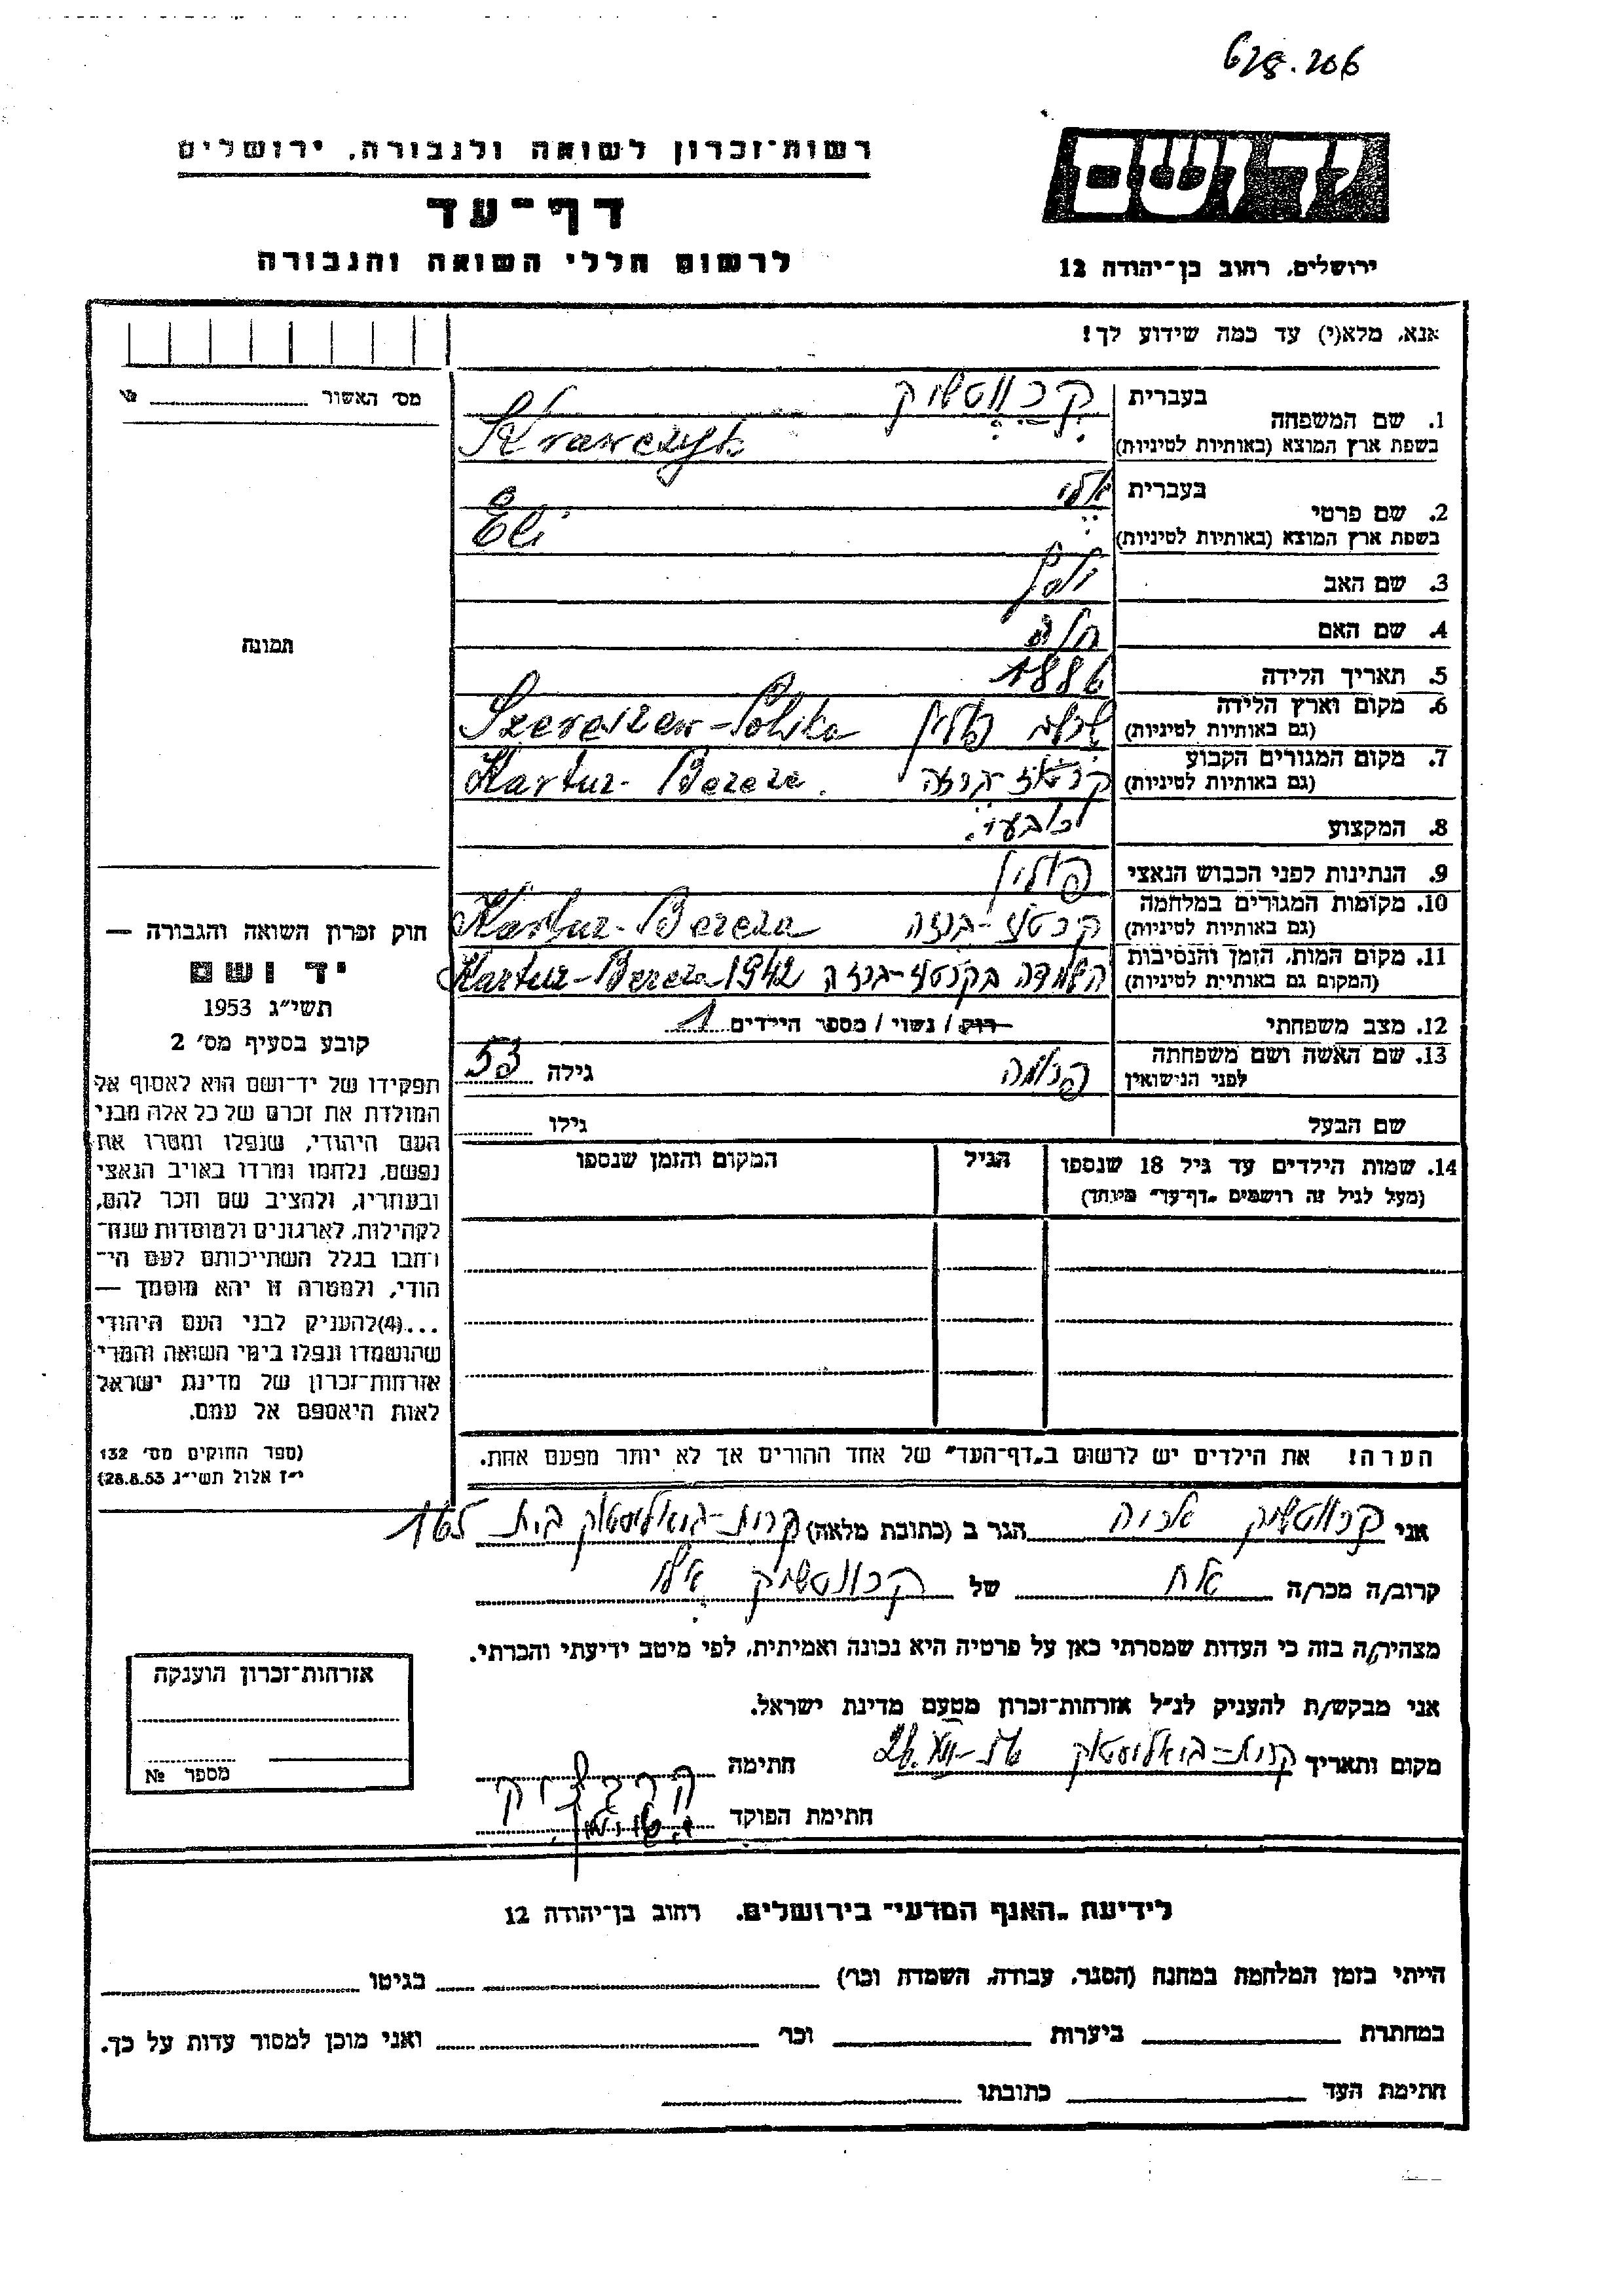 628.206
רשות־זכרון לשואה ולגבורה. ירושלים
דף־עד
לרשום חללי השואה והגבורה
ידושם
ירושלים, רחוב בן־יהודה 12
אנא, מלא(י) עד כמה שידוע לך!
מס׳ האשור
בעברית
1. שם המשפחה
בשפת ארץ המוצא (באותיות לטיניות)
Krawczyk
בעברית אלי
2. שם פרטי
בשפת ארץ המוצא (באותיות לטיניות) Eli
3. שם האב
4. שם האם חיה
תמונה
5. תאריך הלידה 1886
6. מקום וארץ הלידה
(גם באותיות לטיניות) פולין Szereszew-Polska
7. מקום המגורים הקבוע
(גם באותיות לטיניות) קרטוז-ברזה Kartuz-Bereza.
8. המקצוע
9. הנתינות לפני הכבוש הנאצי פולין
10. מקומות המגורים במלחמה
(גם באותיות לטיניות) קרטוז-ברזה Kartuz-Bereza
11. מקום המות, הזמן והנסיבות
(המקום גם באותיות לטיניות) השמדה בקרטוז-ברזה Kartuz-Bereza 1942
12. מצב משפחתי רווק / נשוי / מספר הילדים 1
13. שם האשה ושם משפחתה
לפני הנישואין פרומה גילה 53
שם הבעל גילו
14. שמות הילדים עד גיל 18 שנספו הגיל המקום והזמן שנספו
(מעל לגיל זה רושמים „דף־עד״ מיוחד)
חוק זכרון השואה והגבורה —
יד ושם
תשי״ג 1953
קובע בסעיף מס׳ 2
תפקידו של יד־ושם הוא לאסוף אל
המולדת את זכרם של כל אלה מבני
העם היהודי, שנפלו ומסרו את
נפשם, נלחמו ומרדו באויב הנאצי
ובעוזריו, ולהציב שם וזכר להם,
לקהילות, לארגונים ולמוסדות שנח־
רחבו בגלל השתייכותם לעם הי־
הודי, ולמטרה זו יהא מוסמך —
...(4)להעניק לבני העם היהודי
שהושמדו ונפלו בימי השואה והמרי
אזרחות־זכרון של מדינת ישראל
לאות היאספם אל עמם.
(ספר החוקים מס׳ 132
י״ז אלול תשי״ג 28.8.53)
הערה! את הילדים יש לרשום ב„דף־העד״ של אחד ההורים אך לא יותר מפעם אחת.
אני קרווטשיק אריה הגר ב (כתובת מלאה) קרית-ביאליסטוק בית 165
קרוב/ה מכר/ה אח של קרווטשיק אלי
מצהיר/ה בזה כי העדות שמסרתי כאן על פרטיה היא נכונה ואמיתית, לפי מיטב ידיעתי והכרתי.
אני מבקש/ת להעניק לנ״ל אזרחות־זכרון מטעם מדינת ישראל.
מקום ותאריך קרית-ביאליסטוק חתימה
חתימת הפוקד
אזרחות־זכרון הוענקה
מספר №
לידיעת „האגף המדעי״ בירושלים. רחוב בן־יהודה 12
הייתי בזמן המלחמה במחנה (הסגר, עבודה, השמדה וכר׳) בגיטו
במחתרת ביערות וכר׳ ואני מוכן למסור עדות על כך.
חתימת העד כתובתו